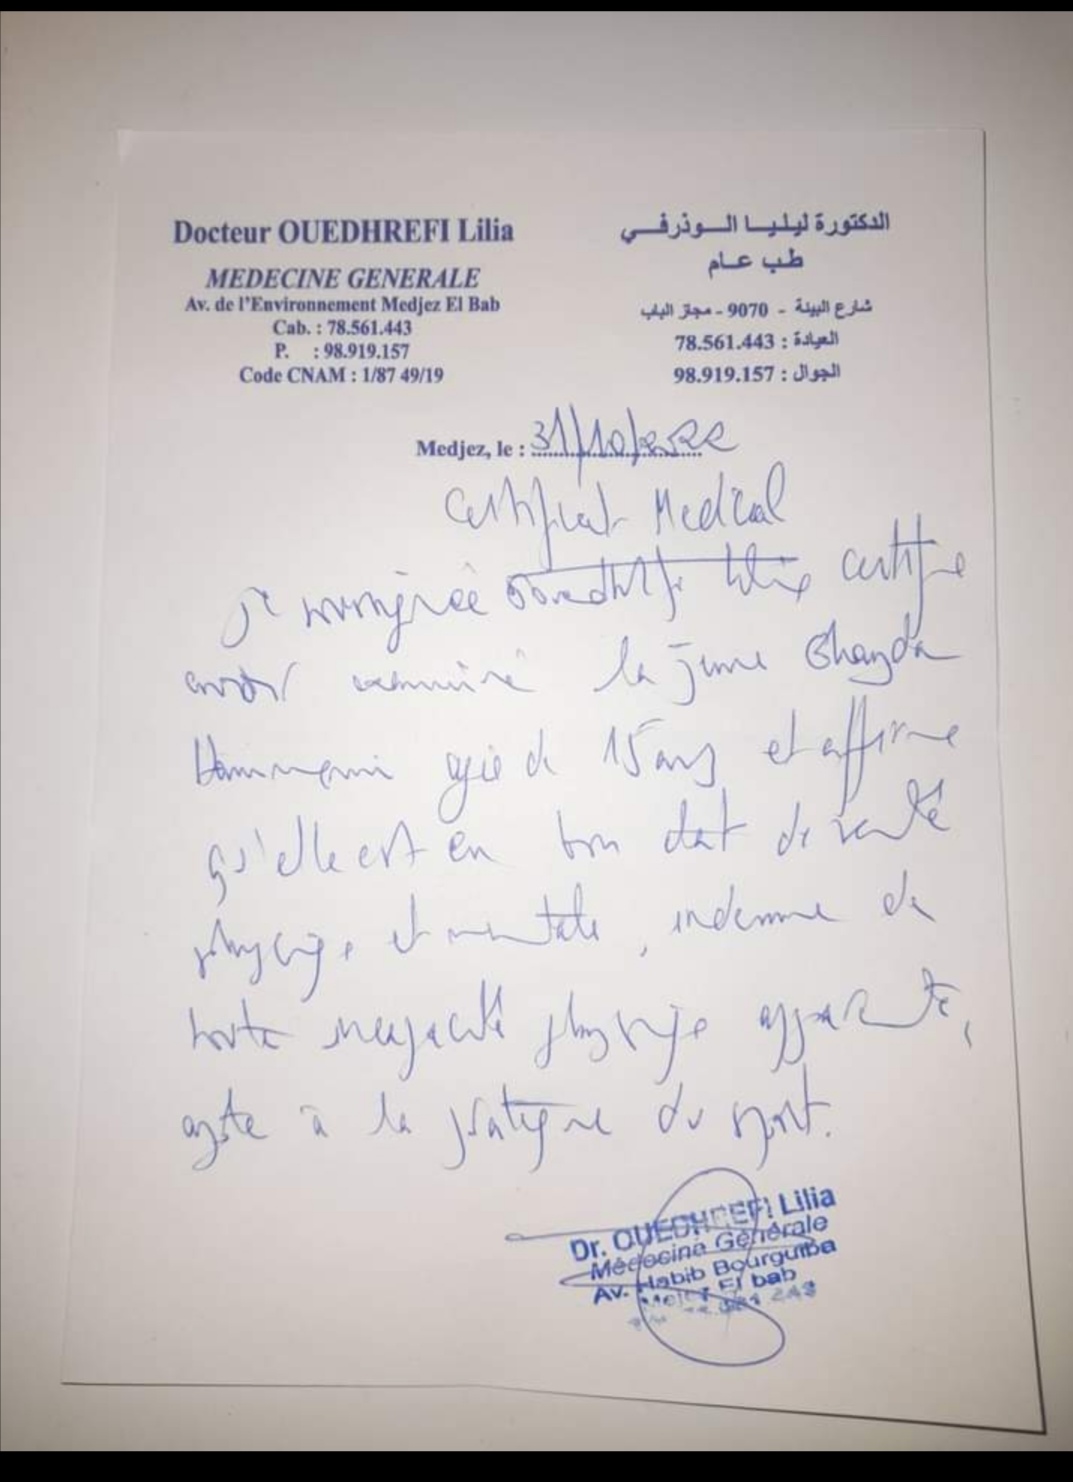 Docteur OUEDHREFI Lilia
MEDECINE GENERALE
Av. de l'Environnement Medjez El Bab
Cab. : 78.561.443
P. : 98.919.157
Code CNAM : 1/87 49/19
الدكتورة ليليا الوذرفي
طب عام
شارع البيئة - 9070 - مجاز الباب
العيادة : 78.561.443
الجوال : 98.919.157
Medjez, le : 31/10/2022
Certificat Medical
je soussignée Ouedhrefi Lilia certifie
avoir examiné la jeune
agée de 15 ans et affirme
qu'elle est en bon état de santé
physique et mentale, indemne de
toute incapacité physique apparente,
apte à la pratique du sport.
Dr. OUEDHREFI Lilia
Médecine Générale
Av. Habib Bourguiba
El bab